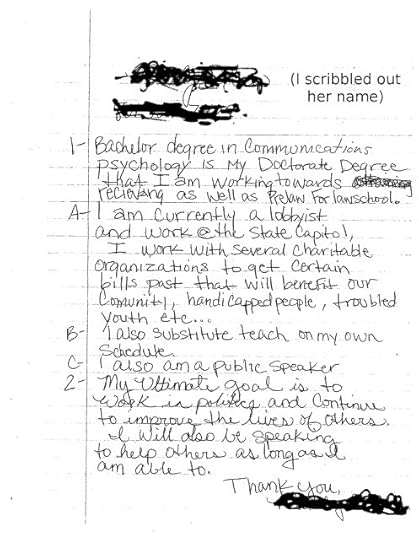 (I scribbled out
her name)
1- Bachelor degree in Communications
psychology is My Doctorate Degree
that I am working towards
recieving as well as Prelaw For lawschool.
A- I am currently a lobbyist
and work @ the State Capitol,
I work with several charitable
organizations to get certain
bills past that will benefit our
Comunity, handicapped people, troubled
youth etc...
B- I also substitute teach on my own
Schedule.
C- I also am a public speaker
2- My Ultimate goal is to
work in politics and Continue
to improve the lives of others.
I will also be speaking
to help others as long as I
am able to.
Thank you,